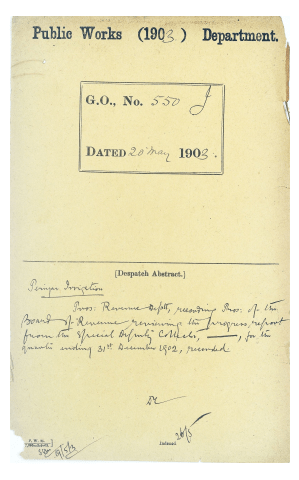 Public Works (1903) Department.
G.O., No. 550 J
DATED 20 May 1903.
[Despatch Abstract.]
Irrigation
Pros: Revenue Deptt, recording Pros. of the
Board of Revenue reviewing the Progress report
from the Special Deputy Collector, ——, for the
quarter ending 31st December 1902, recorded
Indexed 26/5
19/5/3